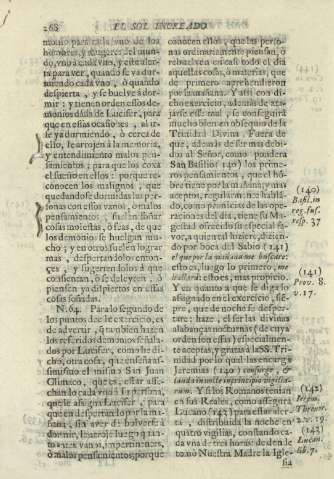 268 EL SOL INDREADO
monio para cada vno de los
hombres, y mugeres del mundo,
y esta alerta
para ver, quando se va durmiendo
cada vno, ò quando
despierta, y se buelve à dormir
; y tienen orden estos demonios
dada de Lucifer, para
que en estas ocasiones, al irse
ya durmiendo, ò cerca de
ello, le arrojen à la memoria,
y entendimiento malos pensamientos
; para que los coxa
el sueño en ellos : porque reconocen
los malignos, que
quedandose dormidas las personas
con essos vanos, ò malos
pensamientos, suelen soñar
cosas molestas, ò feas, de que
los demonios se huelgan mucho
; y en otros suelen lograr
mas, despertandolos entonces,
y sugeriendolos à que
consientan, ò se deleyten, ò
piensen ya dispiertos en essas
cosas soñadas.
N. 64. Para lo segundo de
los puntos de este exercicio, es
de advertir, que tambien hazen
los referidos demonios señalados
por Lucifer, como he dicho,
otra cosa, que enseña el
mismo San Juan
Climaco, que es, estar assechando
la cada vna persona,
que le assigna Lucifer, para
que en despertando por la mañana,
sin aver de bolverse à
dormir, le arroje luego
impertinentes,
ò malos pensamientos; porque
conocen ellos, que las personas
ordinariamente piensan, ò
rebuelven en casi todo el dia
aquellas cosas, ò materias, que
de primero aprehendieron
por la mañana. Y assi con dicho
exercicio, ademàs de atajarse
este mal, se conseguirà
mucho bien en obsequio de la
Trinidad Divina. Fuera de
que, ademàs de ser mas debidos
al Señor, como pondera
San Basilio (140) los primeros
pensamientos, que el hombre
tiene por la mañana, y mas
aceptos, regularmente hablando,
como primicias de las operaciones
del dia, tiene su Magestad
ofrecido su especial favor,
à quien tal hiziere, diziendo
por boca del Sabio (141)
el que por la mañana me buscare;
esto es, luego lo primero, me
hallarà: esto es, mas propicio.
Y en quanto à que se diga lo
assignado en el exercicio, siempre,
que de noche se despertare
: haze, el ser las divina
alabanças nocturnas (de cuya
orden son essas) especialmente
aceptas, y gratas à la SS. Trinidad
por lo qual las encarga
Jeremias (140) consurge, &
lauda in nocte in principio vigiliarum.
Y si los Romanos tenian
en sus Reales, como assegura
Lucano (143) para estar alerta
, distribuida la noche en
quatro vigilias, constando cada
vna de tres horas: de den de
tomò Nuestra Madre la Iglesia
(140)
Basil. in
reg. fus.
resp. 37
(141)
Prov. 8.
v. 17.
(142)
Threnor.
2. v. 19.
(143)
Lucan.
lib. 7.